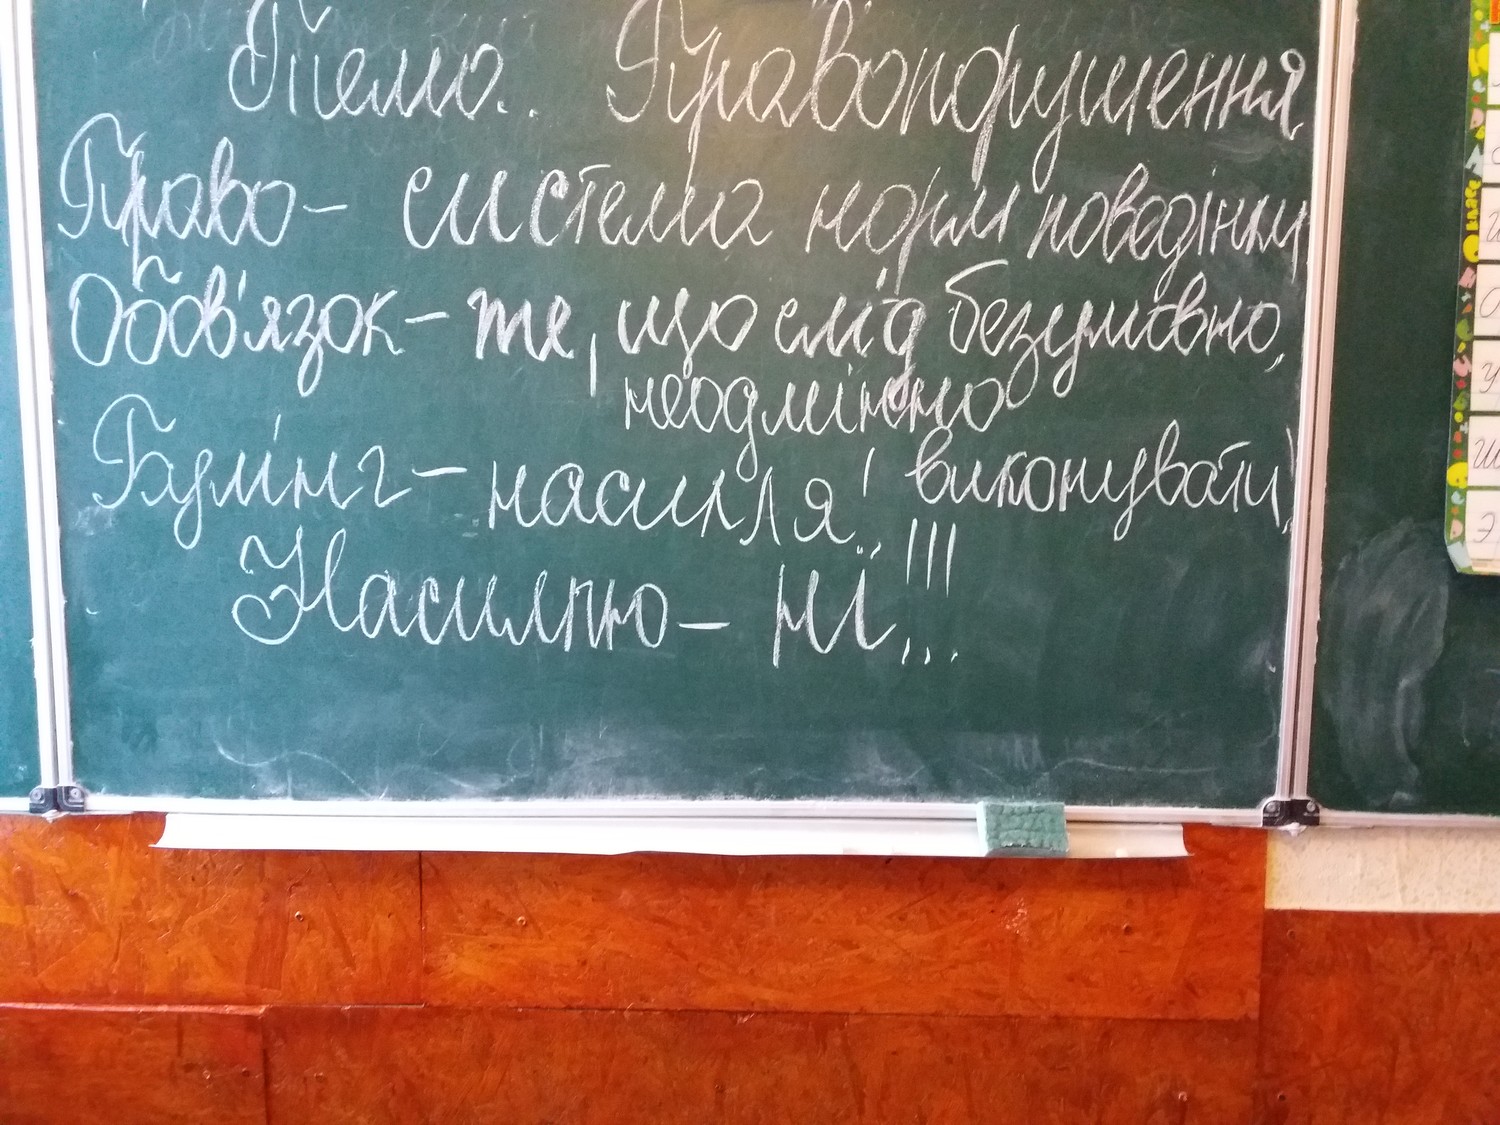 Тема. Правопорушення
Право – система норм поведінки
Обов'язок – те, що слід безумовно,
неодмінно
виконувати
Булінг – насилля!
Насиллю – ні!!!
класс